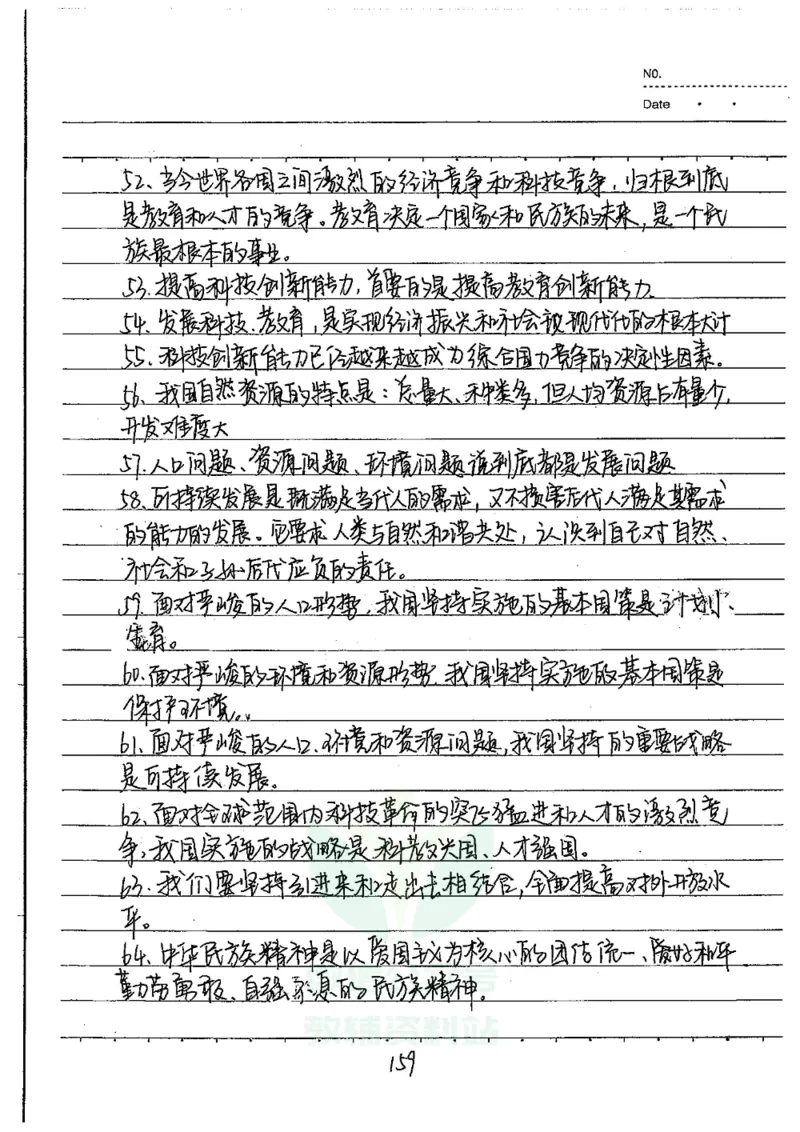 NO.
Date
52、当今世界各国之间激烈的经济竞争和科技竞争，归根到底
是教育和人才的竞争。教育决定一个国家和民族的未来，是一个民
族最根本的事业。
53.提高科技创新能力，首要的是提高教育创新能力.
54、发展科技、教育，是实现经济振兴和社会现代化的根本大计
55、科技创新能力已经越来越成为综合国力竞争的决定性因素。
56、我国自然资源的特点是：总量大、种类多，但人均资源占有量少，
开发难度大
57.人口问题、资源问题、环境问题说到底都是发展问题
58、可持续发展是既满足当代人的需求，又不损害后代人满足其需求
的能力的发展。它要求人类与自然和谐共处，认识到自己对自然、
社会和子孙后代应负的责任。
59.面对严峻的人口形势，我国坚持实施的基本国策是计划
生育。
60.面对严峻的环境和资源形势，我国坚持实施的基本国策是
保护环境。
61、面对严峻的人口、环境和资源问题，我国坚持的重要战略
是可持续发展。
62、面对全球范围内科技革命的突飞猛进和人才的激烈竞
争，我国实施的战略是科教兴国、人才强国。
63、我们要坚持引进来和走出去相结合，全面提高对外开放水
平。
64、中华民族精神是以爱国主义为核心的团结统一、爱好和平
勤劳勇敢、自强不息的民族精神。
教辅资料站
159